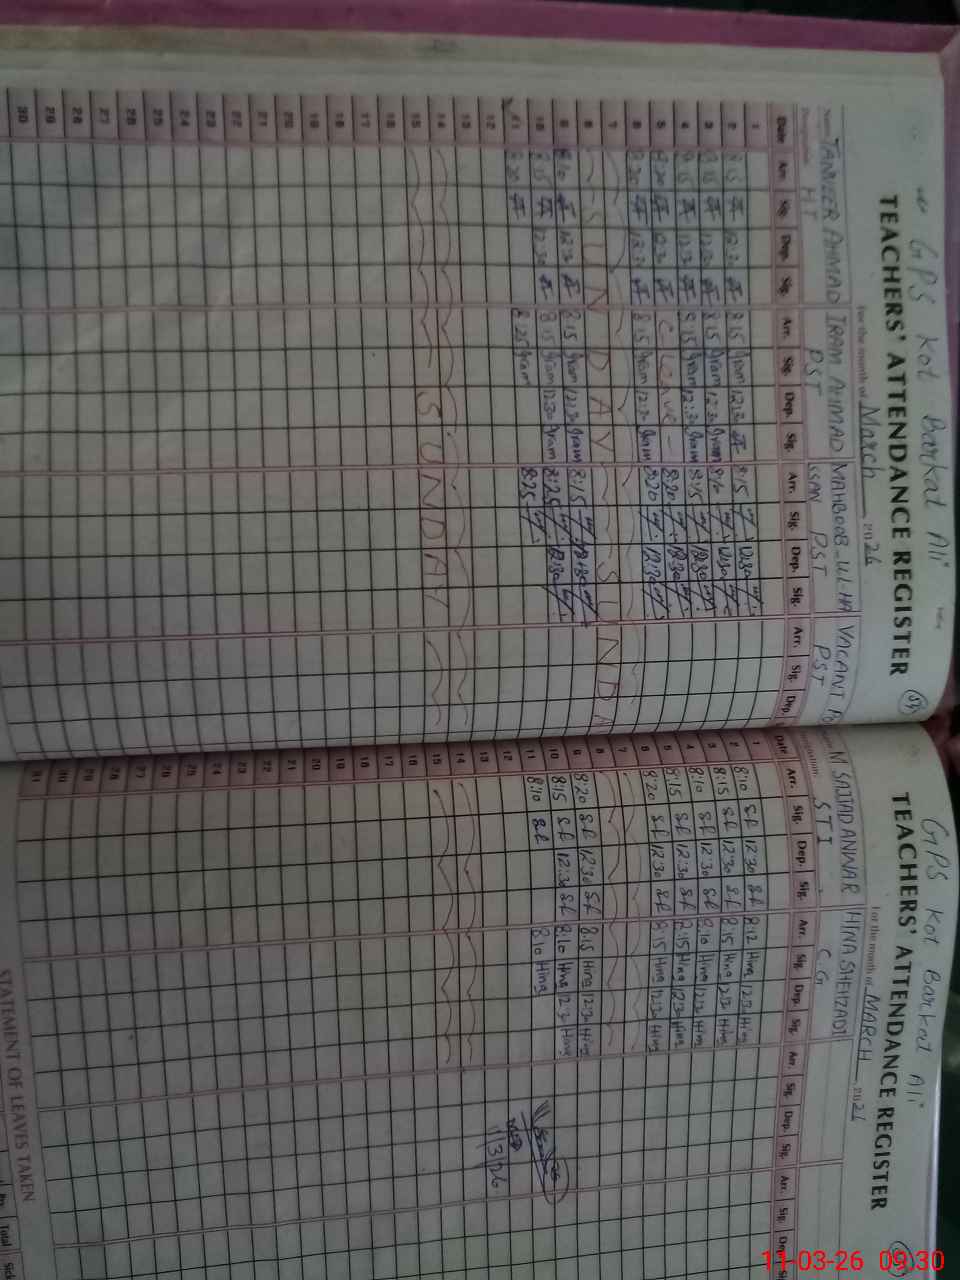 GPS Kot Barkat Ali
TEACHERS' ATTENDANCE REGISTER
For the month of March 2026
Name TANVEER AHMAD IRAM AHMAD MAHBOOB-UL-HA VACANT Po
Designation HT PST SSAN PST PST
Date Arr. Sig. Dep. Sig. Arr. Sig. Dep. Sig. Arr. Sig. Dep. Sig. Arr. Sig. Dep.
1
2 8:15 12:30 8:15 Iram 12:30 8:15 12:30
3 8:15 12:30 8:15 Iram 12:30 Iram 8:10 12:30
4 8:15 12:30 8:15 Iram 12:30 Iram 8:15 12:30
5 8:20 12:30 C Leave 8:20 12:30
6 8:20 12:30 8:15 Iram 12:30 Iram 8:20 12:30
7
8 SUNDAY SUNDA
9 8:10 12:30 8:15 Iram 12:30 Iram 8:15 12:30
10 8:15 12:30 8:15 Iram 12:30 Iram 8:25 12:30
11 8:20 8:25 Iram 8:25
12
13
14 SUNDAY
15
16
17
18
19
20
21
22
23
24
25
26
27
28
29
30
GPS Kot Barkat Ali
TEACHERS' ATTENDANCE REGISTER
For the month of MARCH 2026
M SAJJAD ANWAR HINA SHEHZADI
Designation STI C.G
Date Arr. Sig. Dep. Sig. Arr. Sig. Dep. Sig. Arr. Sig. Dep. Sig. Arr. Sig. Dep. Si
1
2 8:10 12:30 8:12 Hina 12:30 Hina
3 8:15 12:30 8:15 Hina 12:30 Hina
4 8:10 12:30 8:10 Hina 12:30 Hina
5 8:15 12:30 8:15 Hina 12:30 Hina
6 8:20 12:30 8:15 Hina 12:30 Hina
7
8
9 8:20 12:30 8:15 Hina 12:30 Hina
10 8:15 12:30 8:10 Hina 12:30 Hina
11 8:10 8:10 Hina
12
13 11/3/26
14
15
16
17
18
19
20
21
22
23
24
25
26
27
28
29
30
31
STATEMENT OF LEAVES TAKEN
Total Sick
11-03-26 09:30